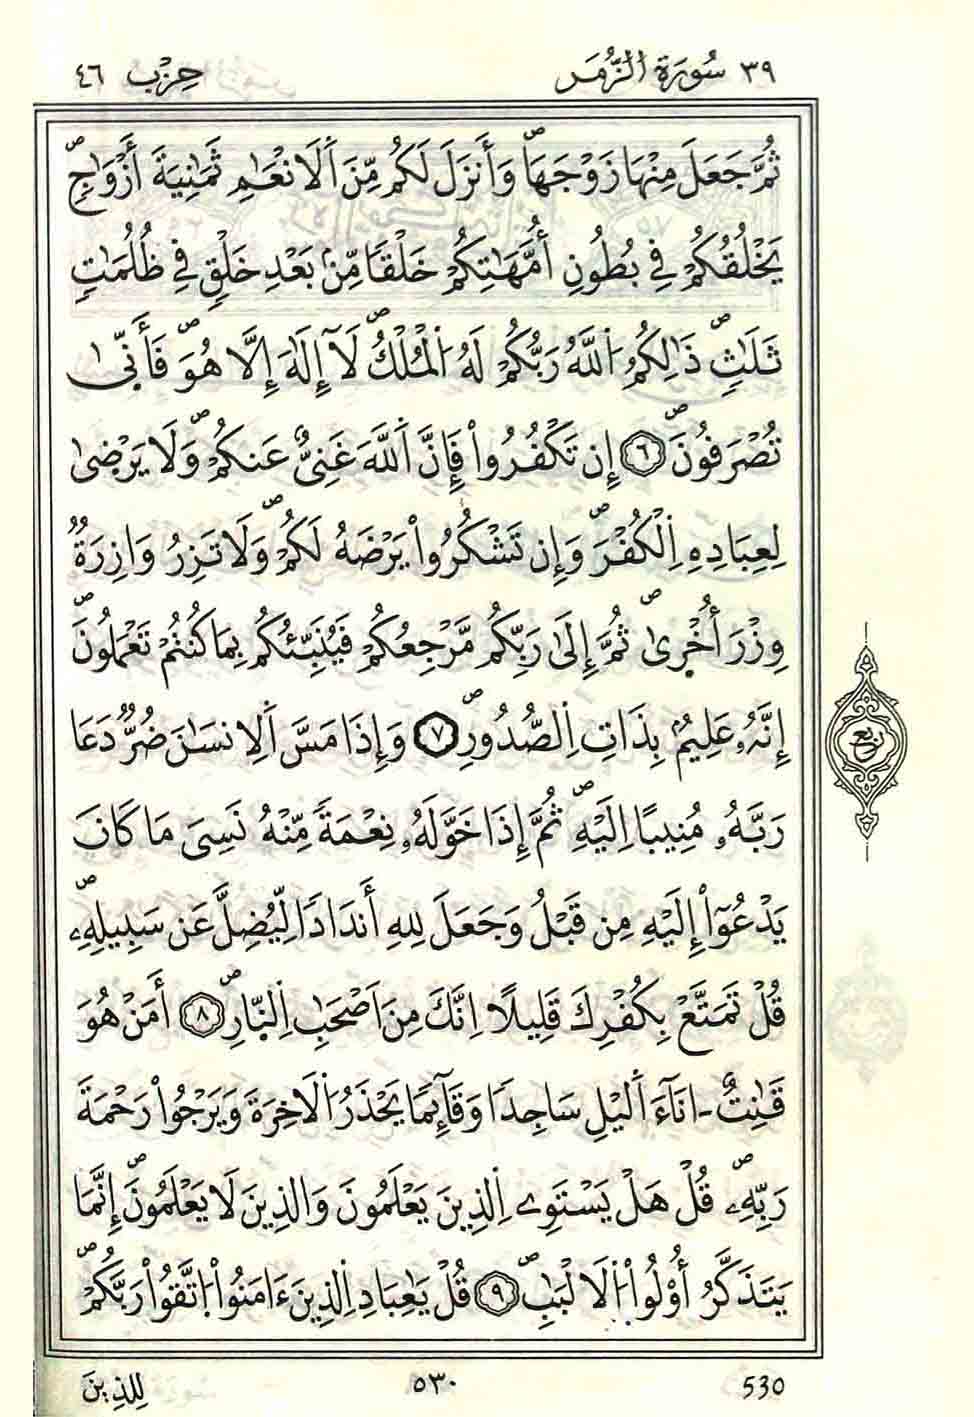 ٣٩ سُورَةُ الزُّمَرِ حِزْب ٤٦
ثُمَّ جَعَلَ مِنْهَا زَوْجَهَاۖ وَأَنزَلَ لَكُم مِّنَ اَ۬لَانْعَٰمِ ثَمَٰنِيَةَ أَزْوَٰجٖۖ
يَخْلُقُكُمْ فِے بُطُونِ أُمَّهَٰتِكُمْ خَلْقاٗ مِّنۢ بَعْدِ خَلْقٖ فِے ظُلُمَٰتٖ
ثَلَٰثٖۖ ذَٰلِكُمُ اُ۬للَّهُ رَبُّكُمْ لَهُ اُ۬لْمُلْكُۖ لَآ إِلَٰهَ إِلَّا هُوَۖ فَأَنّ۪يٰ
تُصْرَفُونَۖ ٦ إِن تَكْفُرُواْ فَإِنَّ اَ۬للَّهَ غَنِيٌّ عَنكُمْۖ وَلَا يَرْض۪يٰ
لِعِبَادِهِ اِ۬لْكُفْرَۖ وَإِن تَشْكُرُواْ يَرْضَهُ لَكُمْۖ وَلَا تَزِرُ وَازِرَةٞ
وِزْرَ أُخْر۪يٰۖ ثُمَّ إِلَىٰ رَبِّكُم مَّرْجِعُكُمْ فَيُنَبِّئُكُم بِمَا كُنتُمْ تَعْمَلُونَۖ
إِنَّهُۥ عَلِيمُۢ بِذَاتِ اِ۬لصُّدُورِۖ ٧ وَإِذَا مَسَّ اَ۬لِانسَٰنَ ضُرّٞ دَعَا
رَبَّهُۥ مُنِيباً اِلَيْهِۖ ثُمَّ إِذَا خَوَّلَهُۥ نِعْمَةٗ مِّنْهُ نَسِىَ مَا كَانَ
يَدْعُوٓاْ إِلَيْهِ مِن قَبْلُ وَجَعَلَ لِلهِ أَندَاداٗ لِّيُضِلَّ عَن سَبِيلِهِۦۖ
قُلْ تَمَتَّعْ بِكُفْرِكَ قَلِيلاً اِنَّكَ مِنَ اَصْحَٰبِ اِ۬لنّ۪ارِۖ ٨ أَمَنْ هُوَ
قَٰنِتٌ ـ انَآءَ اَ۬ليْلِ سَاجِداٗ وَقَآئِماٗ يَحْذَرُ اُ۬لَاخِرَةَ وَيَرْجُواْ رَحْمَةَ
رَبِّهِۦۖ قُلْ هَلْ يَسْتَوِے اِ۬لذِينَ يَعْلَمُونَ وَالذِينَ لَا يَعْلَمُونَۖ إِنَّمَا
يَتَذَكَّرُ أُوْلُواْ اُ۬لَالْبَٰبِۖ ٩ قُلْ يَٰعِبَادِ اِ۬لذِينَ ءَامَنُواْ اُ۪تَّقُواْ رَبَّكُمْۖ
رُبُع
لِلذِينَ ٥٣٠ 530